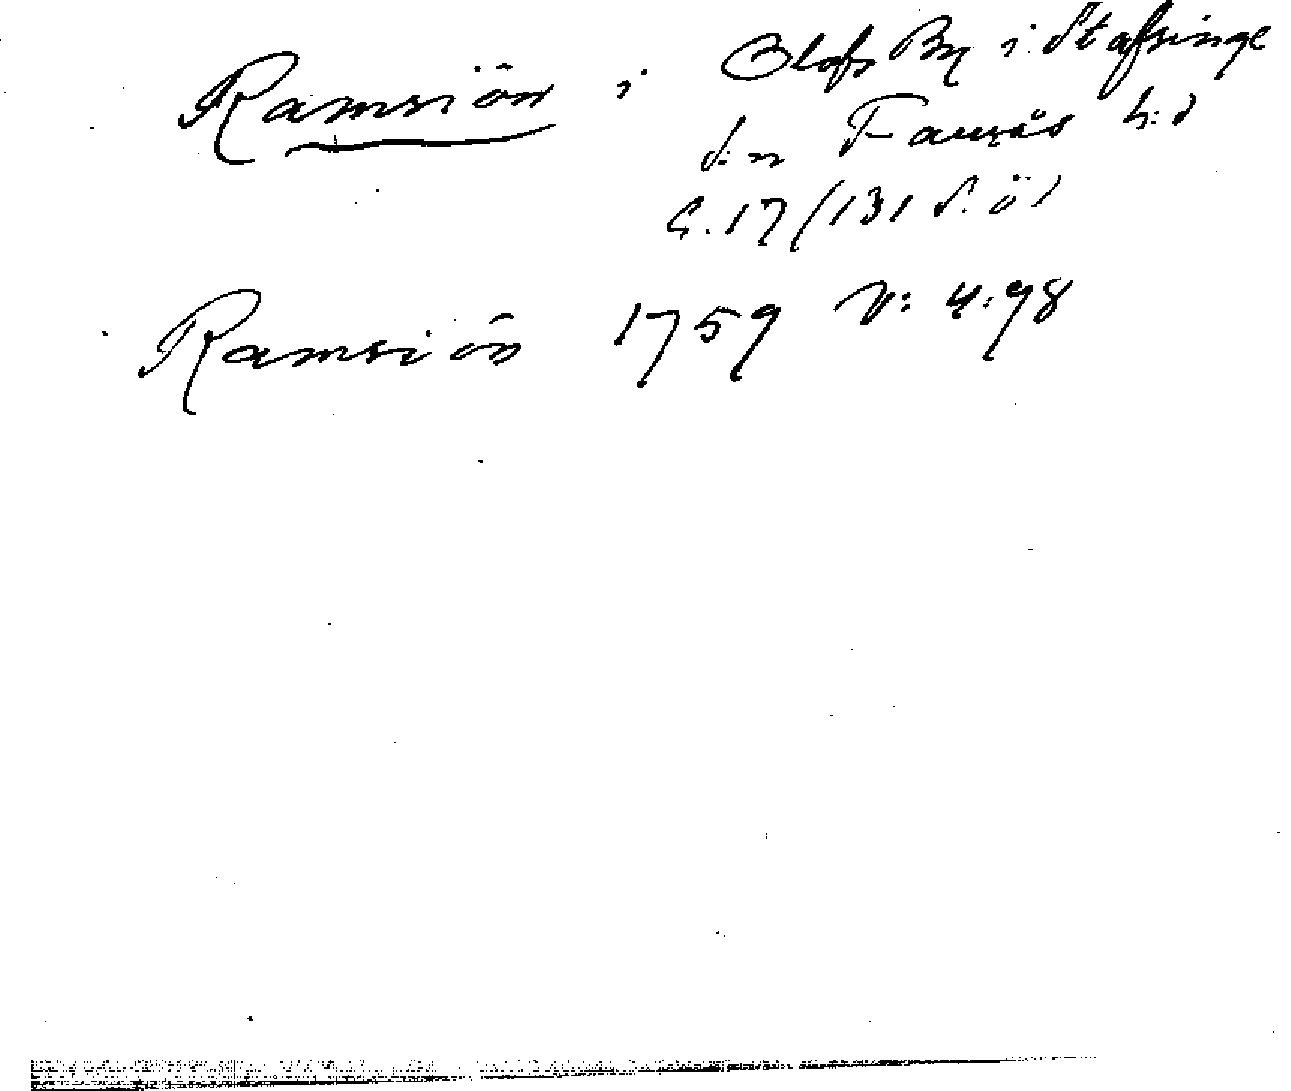 Ramsiön i Olofs By i Stafsinge
s:n Faurås h:d
G. 17/131 S. ö!
Ramsiön 1759 V: 4:98